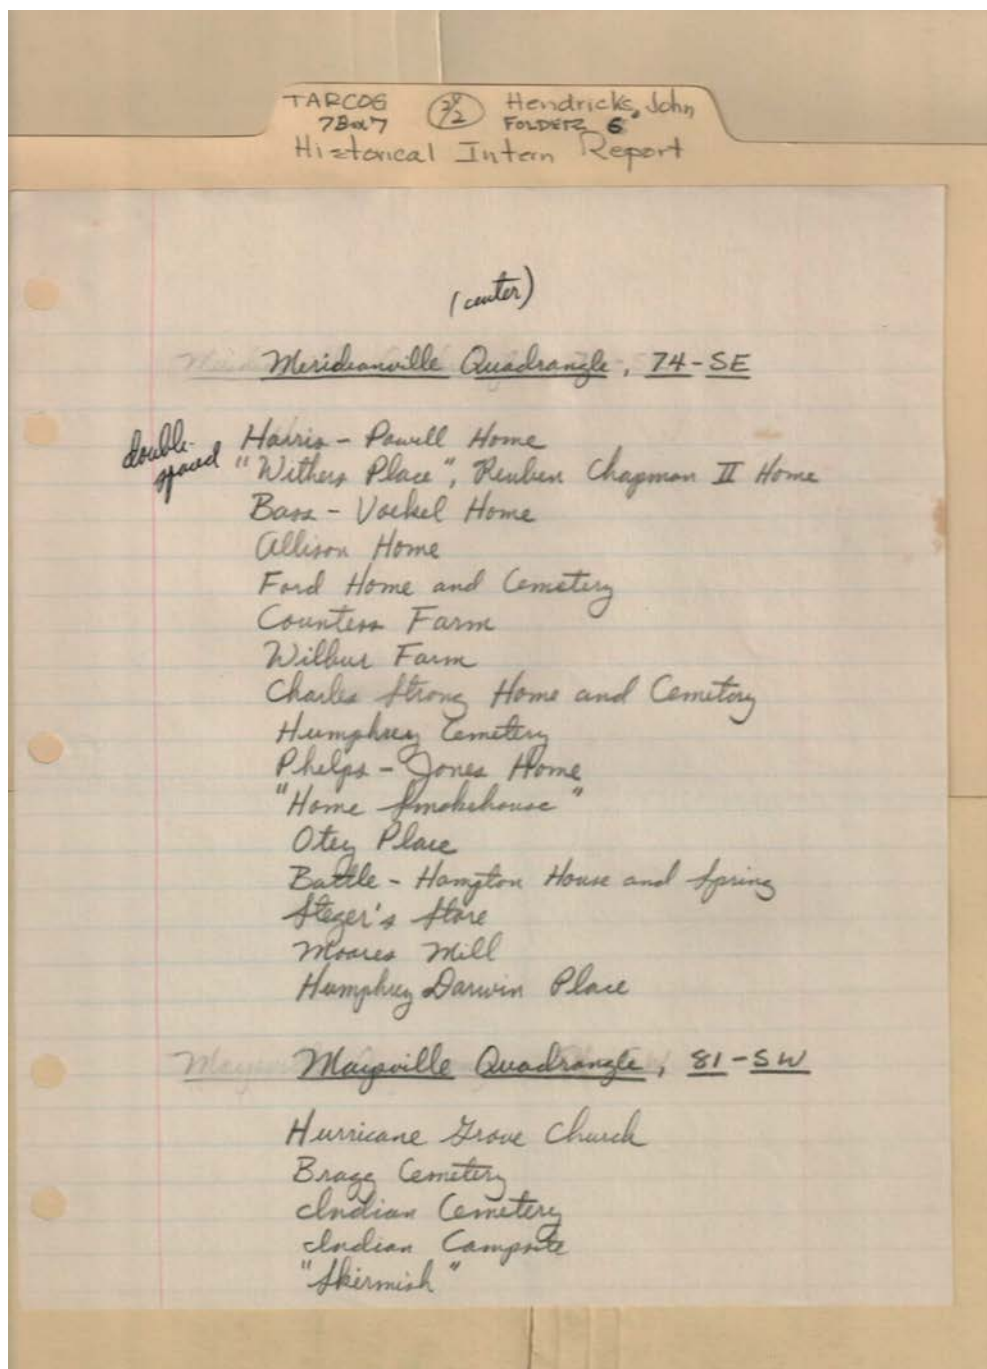 TARCOG 24/2 Hendricks, John
7Box7 FOLDER 6
Historical Intern Report
(center)
Meridianville Quadrangle, 74-SE
double-
spaced
Harris - Powell Home
"Withers Place", Reuben Chapman II Home
Bass - Voekel Home
Allison Home
Ford Home and Cemetery
Countess Farm
Wilbur Farm
Charles Strong Home and Cemetery
Humphrey Cemetery
Phelps - Jones Home
"Home Smokehouse"
Otey Place
Battle - Hampton House and Spring
Steger's Store
Moores Mill
Humphrey Darwin Place
Maysville Quadrangle, 81-SW
Hurricane Grove Church
Bragg Cemetery
Indian Cemetery
Indian Campsite
"Skirmish"